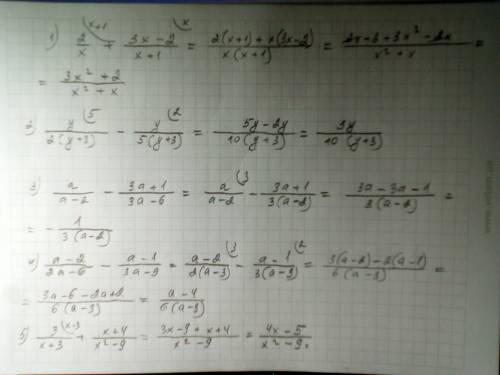 1) 2/x (x+1 + (3x-2)/(x+1) (x = (2(x+1)+x(3x-2))/(x(x+1)) = (2x+2+3x²-2x)/(x²+x) =
= (3x²+2)/(x²+x)
2) y/(2(y+3)) (5 - y/(5(y+3)) (2 = (5y-2y)/(10(y+3)) = 3y/(10(y+3))
3) a/(a-2) - (3a+1)/(3a-6) = a/(a-2) (3 - (3a+1)/(3(a-2)) = (3a-3a-1)/(3(a-2)) =
= - 1/(3(a-2))
4) (a-2)/(2a-6) - (a-1)/(3a-9) = (a-2)/(2(a-3)) (3 - (a-1)/(3(a-3)) (2 = (3(a-2)-2(a-1))/(6(a-3)) =
= (3a-6-2a+2)/(6(a-3)) = (a-4)/(6(a-3))
5) 3/(x+3) (x-3 + (x+4)/(x²-9) = (3x-9+x+4)/(x²-9) = (4x-5)/(x²-9).